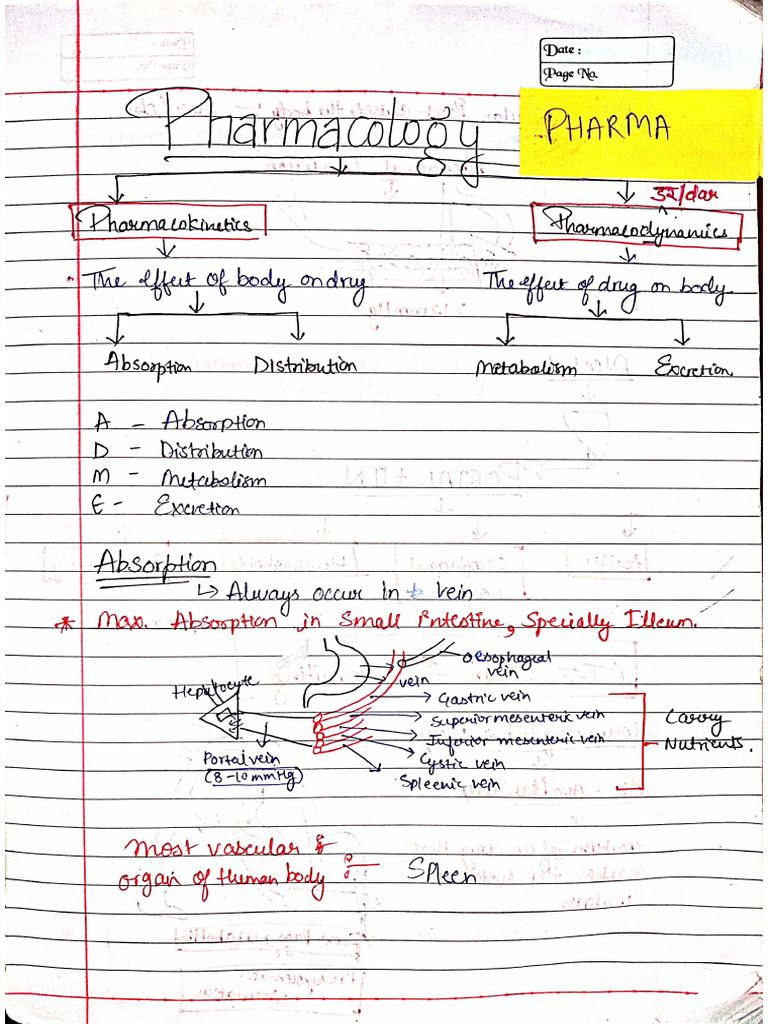 Date :
Page No.
Pharmacology
PHARMA
डर/dar
Pharmacokinetics
Pharmacodynamics
The effect of body on drug
The effect of drug on body.
Absorption Distribution
Metabolism Excretion.
A - Absorption
D - Distribution
M - Metabolism
E - Excretion
Absorption
↳ Always occur In vein
* Max. Absorption in Small intestine, Specially Illeum.
Oesophageal
vein
vein
Hepatocyte
Gastric vein
Superior mesenteric vein
Inferior mesenteric vein
Cystic vein
Spleenic vein
Carry
Nutrients.
Portal vein
(8-10 mmHg)
Most vascular
organ of Human body :- Spleen